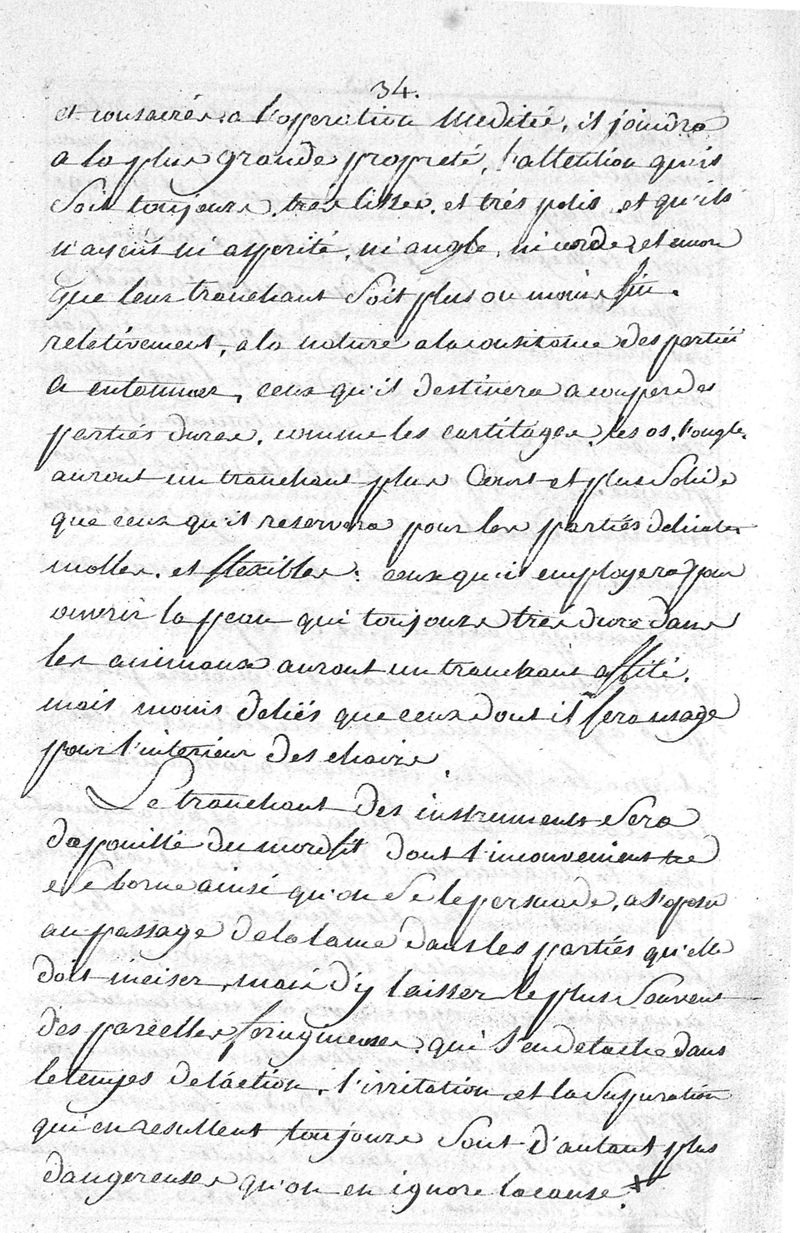 34.
et consacrés a l'opperation Meditée, il joindra
a la plus grande propreté, l'attetition qu'ils
Soit toujours, trés lisses, et trés polis, et qu'ils
n'ayent ni asperité, ni angle, ni corde et
que leur tranchant Soit plus ou moins fin.
relativement, a la nature a la consistance des parties
a entammer, ceux qu'il destinera a couper des
partiés dures, comme les cartilages, les os, l'ongle,
auront un tranchant plus Court et plus Solide
que ceux qu'il reservera pour les partiés delicates
molles, et flexibles; ceux qu'il employera pour
ouvrir la peau qui toujours trés dure dans
les animaux auront un tranchant affilé,
mais moins deliés que ceux dont il fera usage
pour l'interieur des chaires.
Le tranchant des instruments Sera
depouillé du morfil dont l'inconvenient
Se borne ainsi qu'on Se le persuade, a S'oposer
au passage de la lame dans les partiés qu'elle
doit inciser, mais d'y laisser le plus Souvent
des parcelles ferrugineuses, qui S'en detache dans
le temps de l'action, l'irritation et la Supuration
qui en resultent toujours Sont d'autant plus
dangereuses qu'on en ignore la cause.